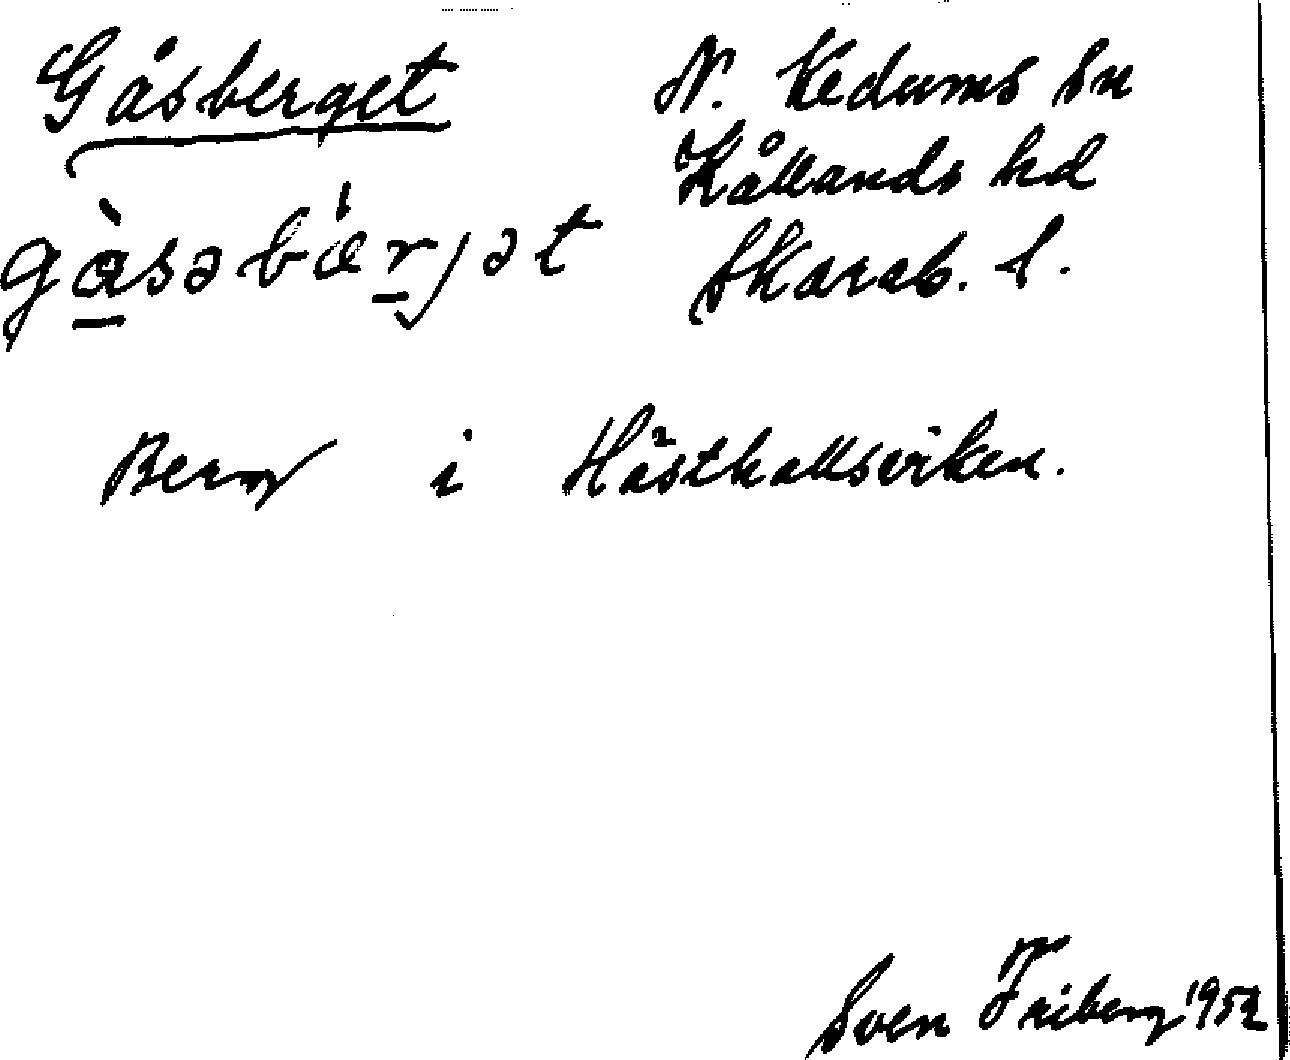 Gåsberget
N. Kedums sn
Kållands hd
Skarab. l.
gàsəbǽrjət
Berg i Hästhallsviken.
Sven Friberg 1952